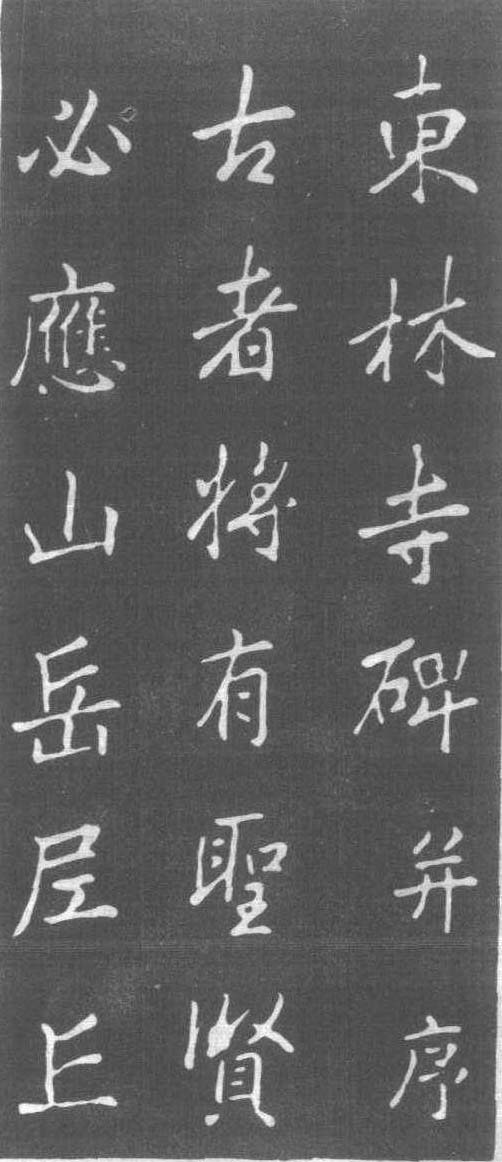 東林寺碑并序
古者將有聖賢
必應山岳尼丘